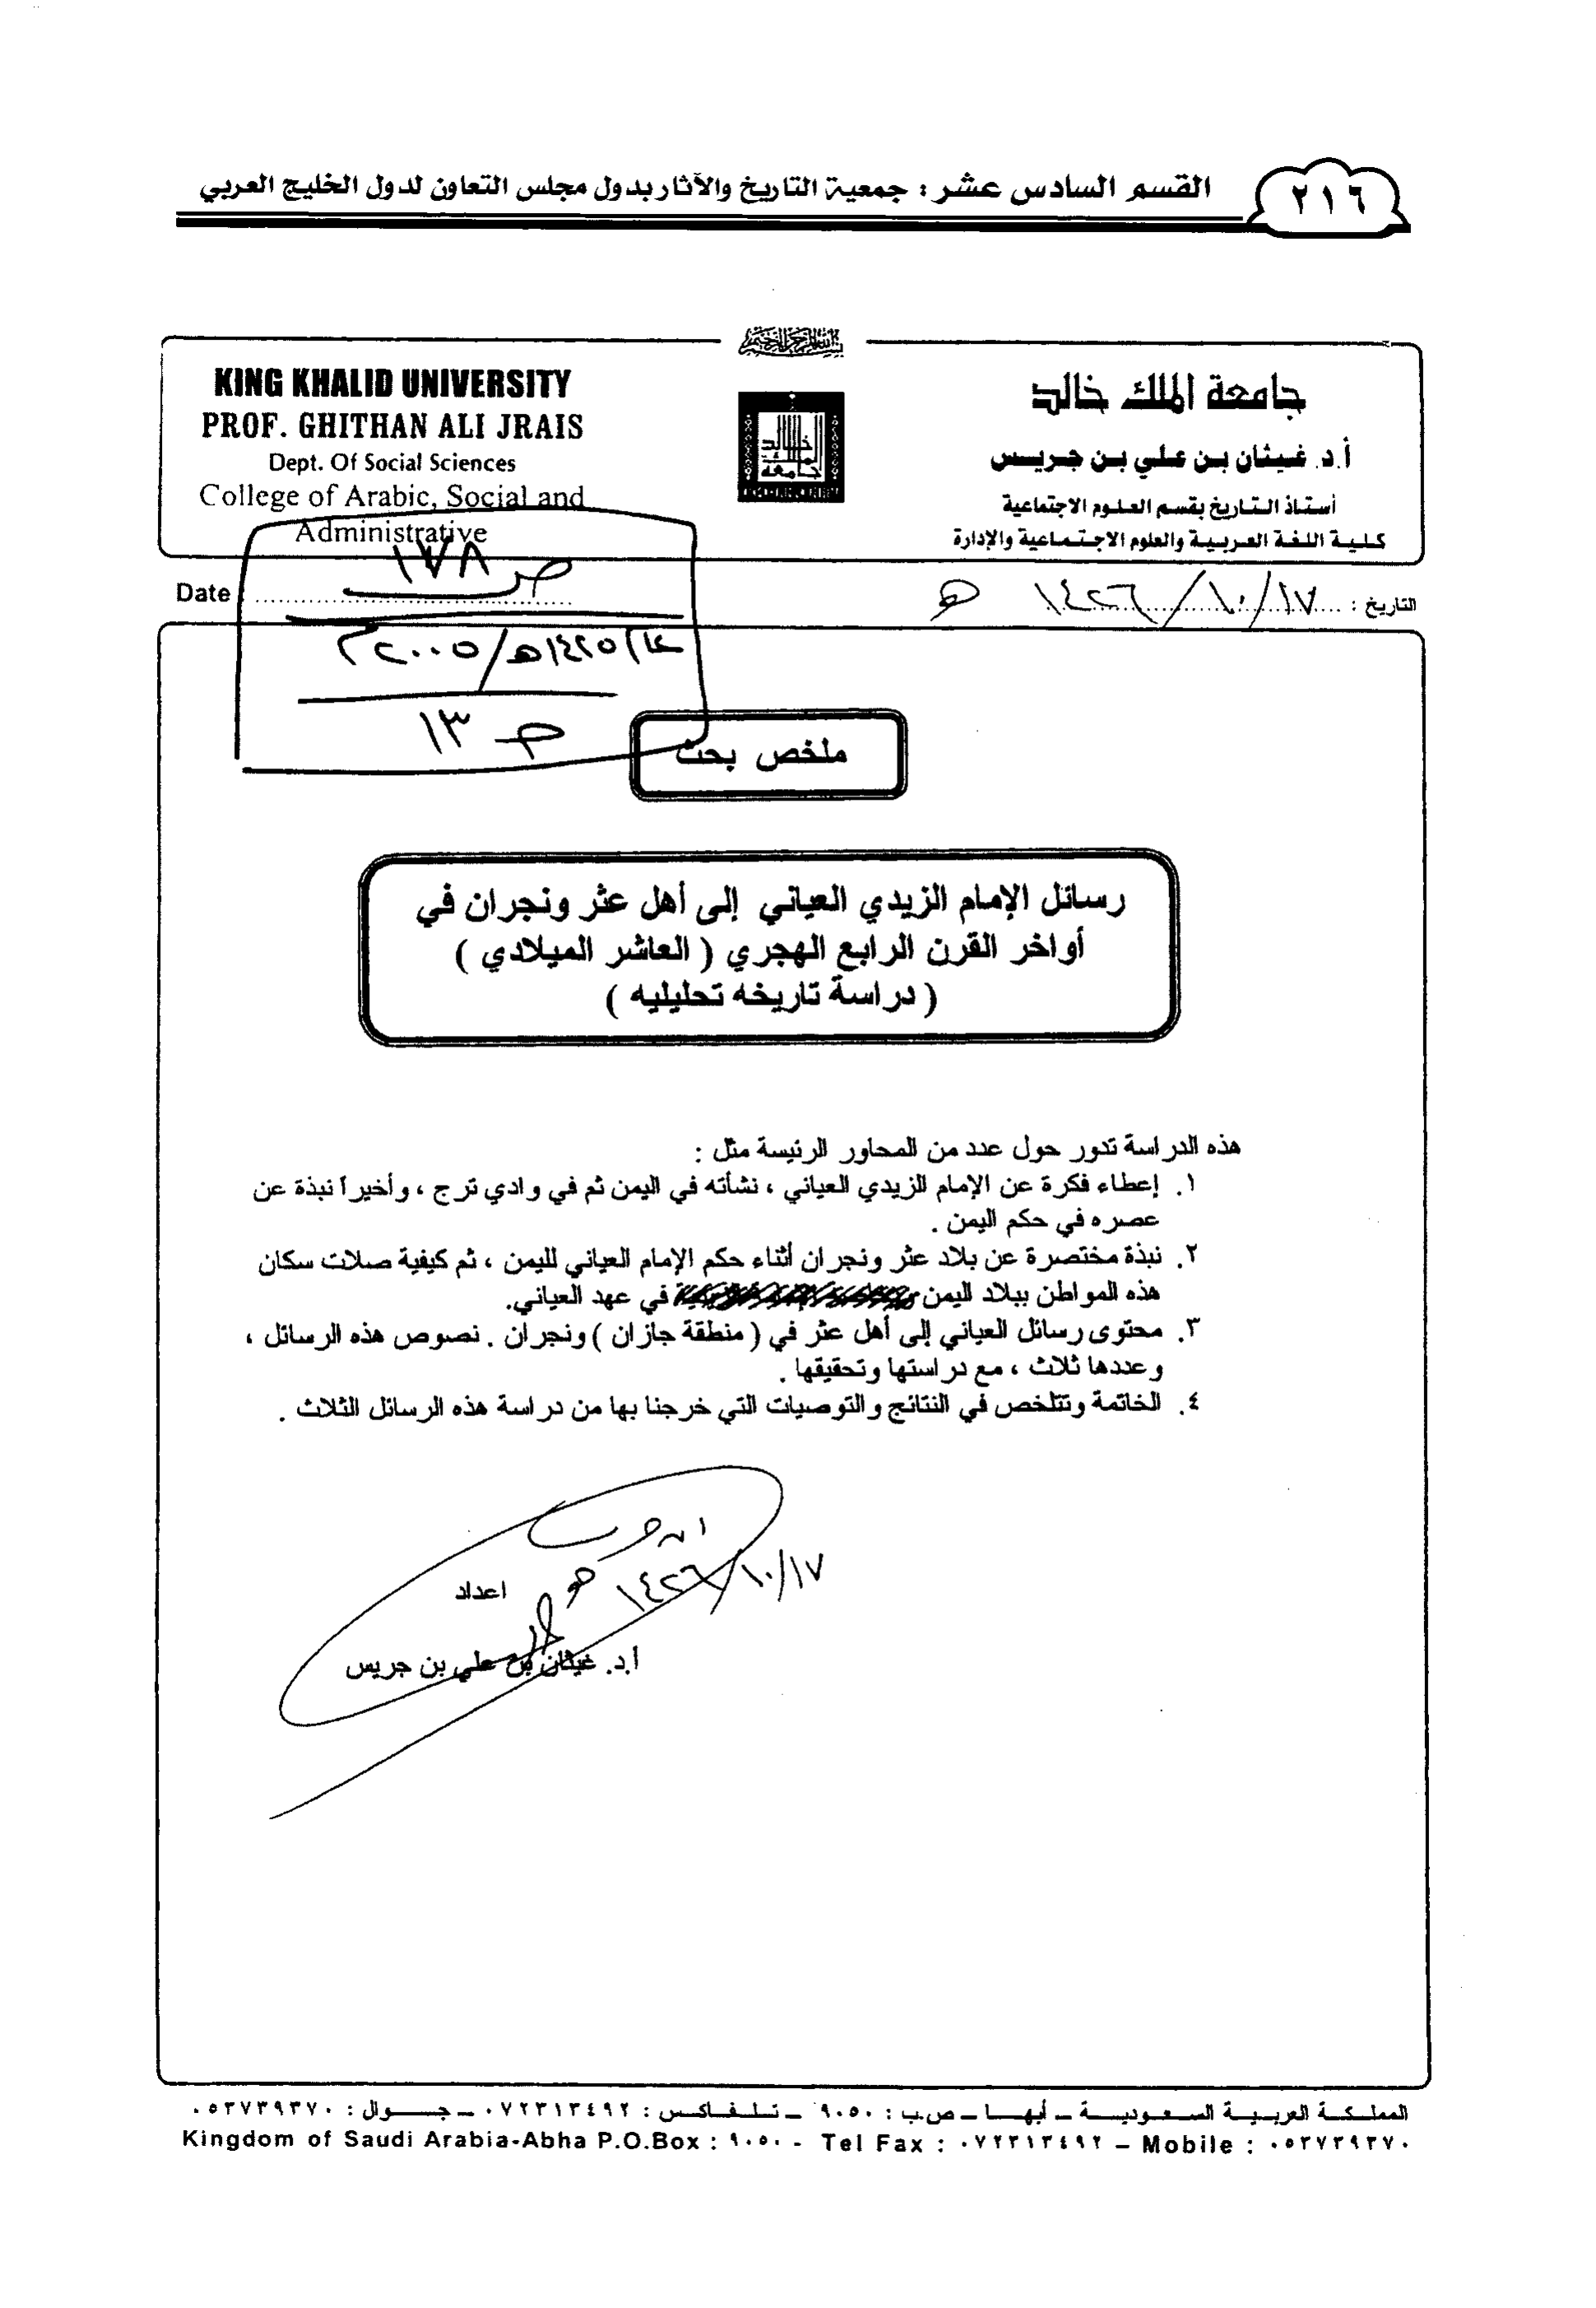 ٢١٦
القسم السادس عشر : جمعية التاريخ والآثار بدول مجلس التعاون لدول الخليج العربي
بسم الله الرحمن الرحيم
KING KHALID UNIVERSITY
PROF. GHITHAN ALI JRAIS
Dept. Of Social Sciences
College of Arabic, Social and
Administrative
جامعة الملك خالد
جامعة الملك خالد
أ.د. غيثان بن علي بن جريس
أستاذ التاريخ بقسم العلوم الاجتماعية
كلية اللغة العربية والعلوم الاجتماعية والإدارة
التاريخ : ١٤٢٦/١٠/١٧ هـ
Date :
ص ١٧٨
١٤٢٥هـ/٢٠٠٥م
ص ١٣
ملخص بحث
رسائل الإمام الزيدي العياني إلى أهل عثر ونجران في
أواخر القرن الرابع الهجري ( العاشر الميلادي )
( دراسة تاريخه تحليليه )
هذه الدراسة تدور حول عدد من المحاور الرئيسة مثل :
١. إعطاء فكرة عن الإمام الزيدي العياني ، نشأته في اليمن ثم في وادي ترج ، وأخيراً نبذة عن
عصره في حكم اليمن .
٢. نبذة مختصرة عن بلاد عثر ونجران أثناء حكم الإمام العياني لليمن ، ثم كيفية صلات سكان
هذه المواطن ببلاد اليمن في عهد العياني.
٣. محتوى رسائل العياني إلى أهل عثر في ( منطقة جازان ) ونجران . نصوص هذه الرسائل ،
وعددها ثلاث ، مع دراستها وتحقيقها .
٤. الخاتمة وتتلخص في النتائج والتوصيات التي خرجنا بها من دراسة هذه الرسائل الثلاث .
١٤٢٦/١٠/١٧ هـ
اعداد
أ.د. غيثان بن علي بن جريس
المملكة العربية السعودية – أبها – ص.ب : ٩٠٥٠ – تلفاكس : ٠٧٢٣١٣٤٩٢ – جوال : ٠٥٣٧٣٩٣٧٠
Kingdom of Saudi Arabia-Abha P.O.Box : ٩٠٥٠ - Tel Fax : ٠٧٢٣١٣٤٩٢ – Mobile : ٠٥٣٧٣٩٣٧٠